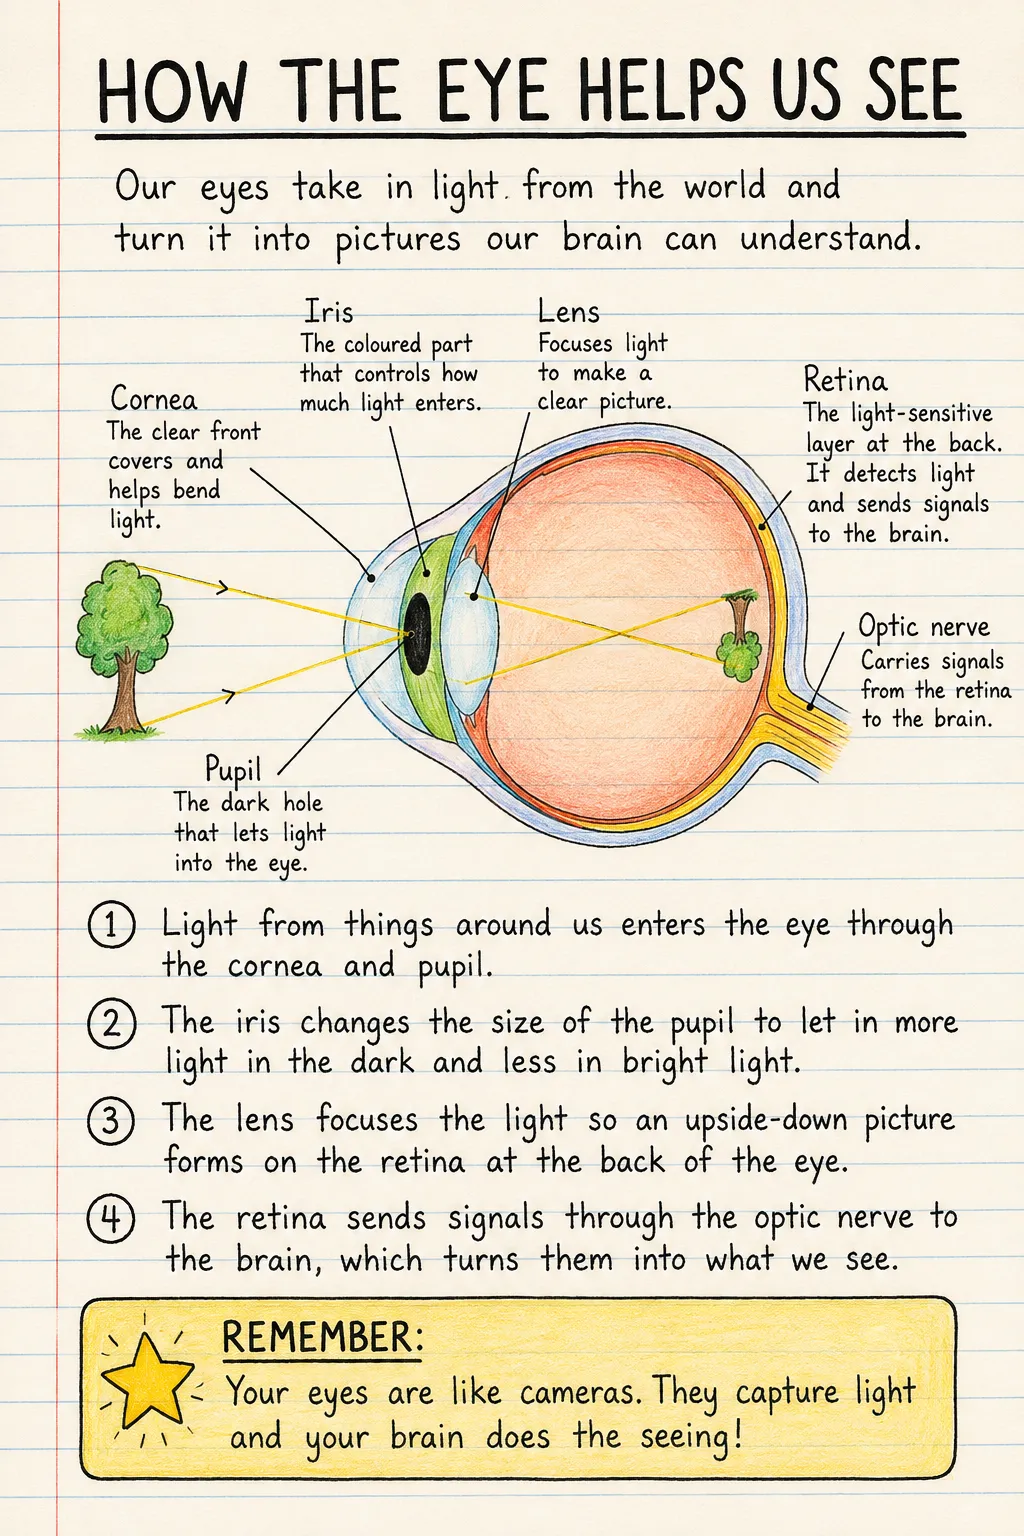 HOW THE EYE HELPS US SEE
Our eyes take in light. from the world and
turn it into pictures our brain can understand.
Iris
The coloured part
that controls how
much light enters.
Lens
Focuses light
to make a
clear picture.
Retina
The light-sensitive
layer at the back.
It detects light
and sends signals
to the brain.
Cornea
The clear front
covers and
helps bend
light.
Optic nerve
Carries signals
from the retina
to the brain.
Pupil
The dark hole
that lets light
into the eye.
1 Light from things around us enters the eye through
the cornea and pupil.
2 The iris changes the size of the pupil to let in more
light in the dark and less in bright light.
3 The lens focuses the light so an upside-down picture
forms on the retina at the back of the eye.
4 The retina sends signals through the optic nerve to
the brain, which turns them into what we see.
REMEMBER:
Your eyes are like cameras. They capture light
and your brain does the seeing!